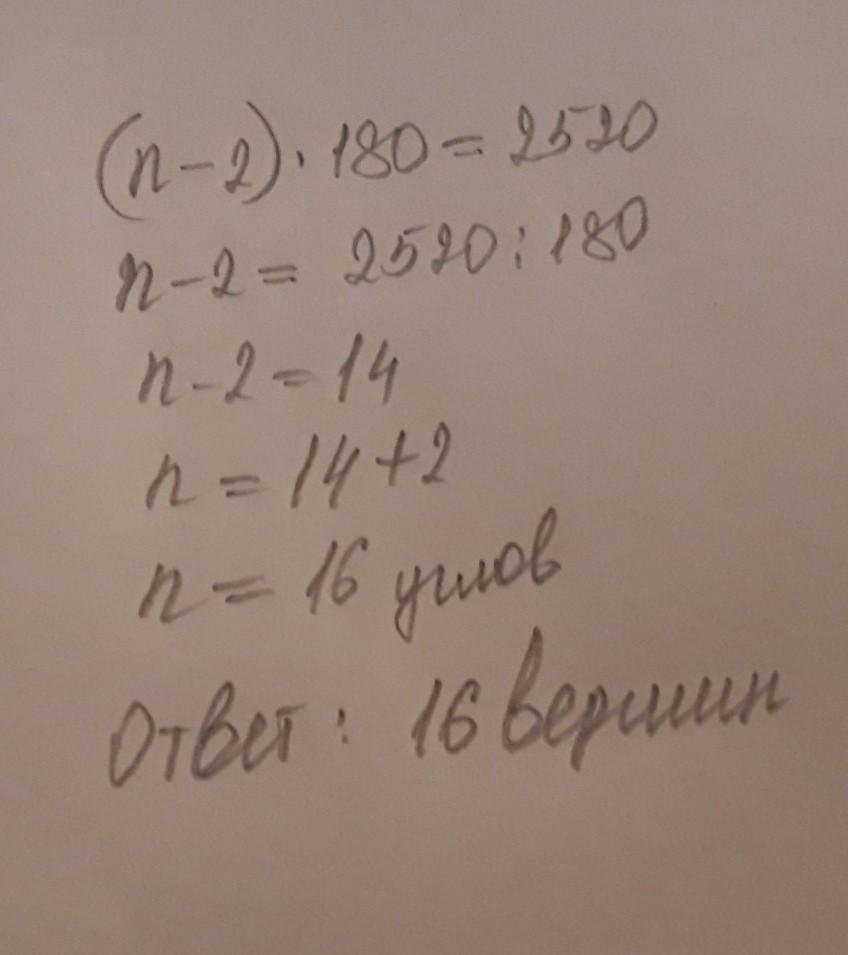 (n-2)·180=2520
n-2= 2520:180
n-2=14
n=14+2
n=16 углов
Ответ: 16 вершин